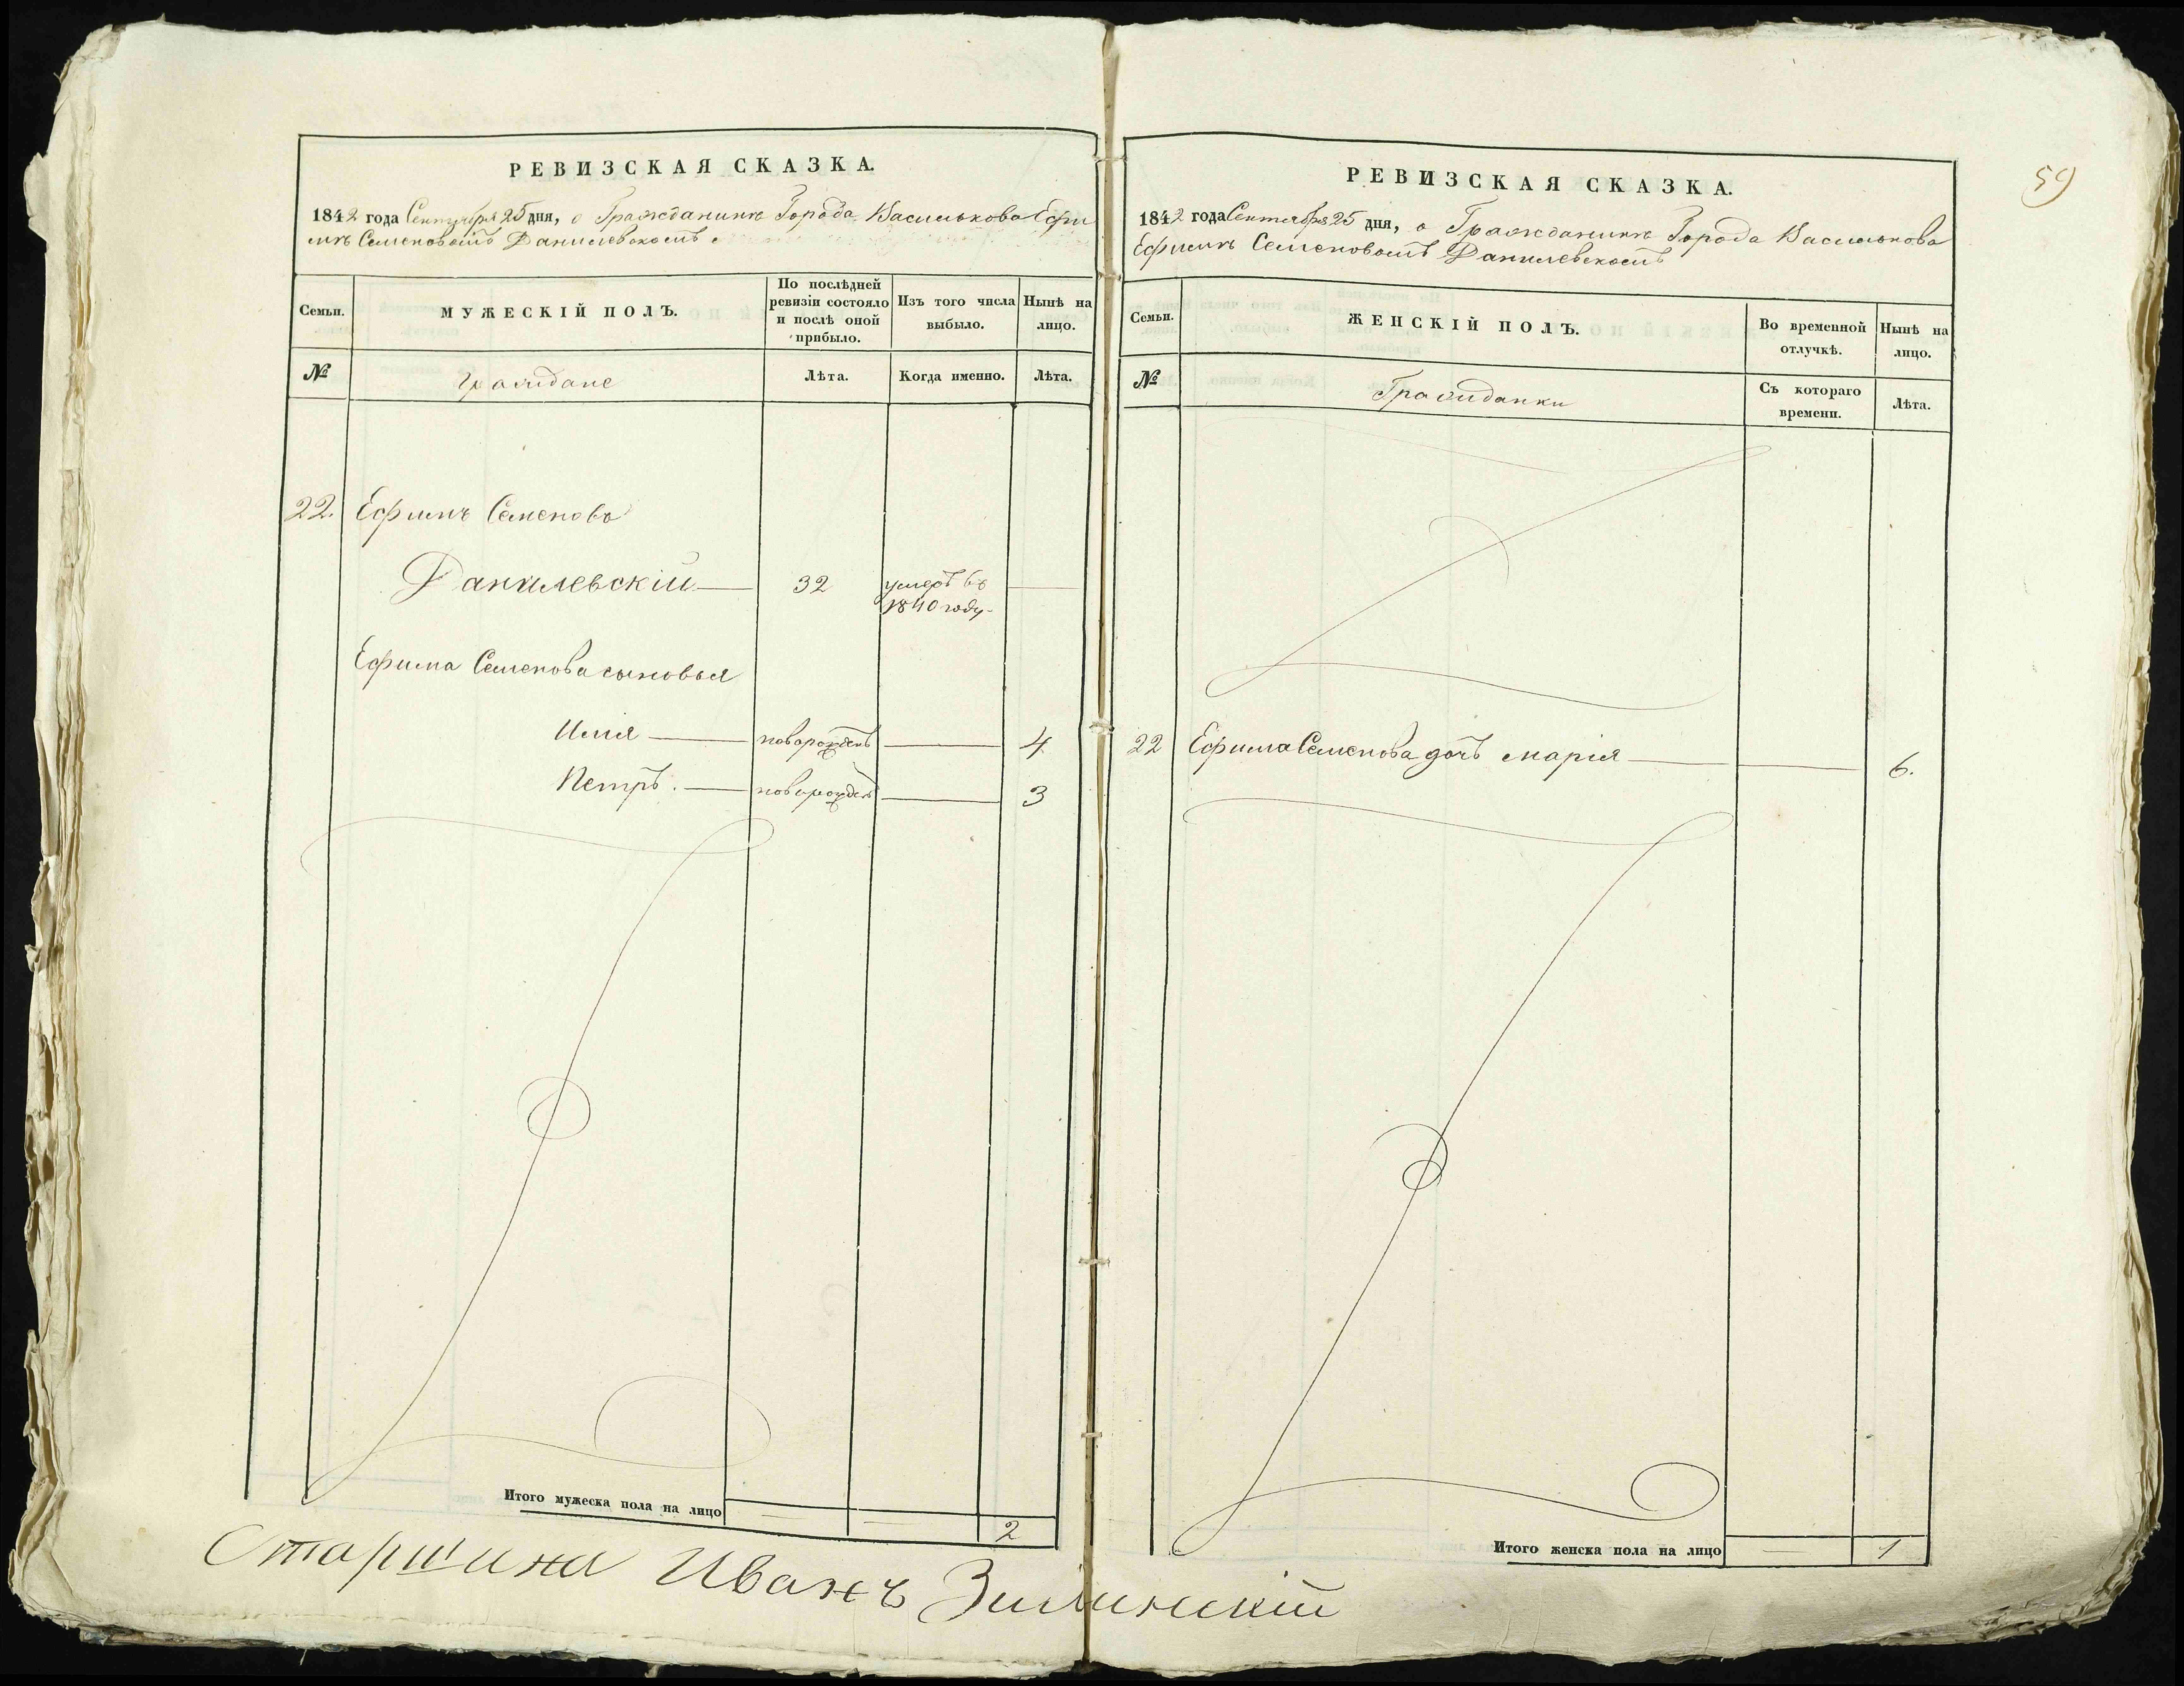 59
РЕВИЗСКАЯ СКАЗКА.
1842 года Сентября 25 дня, о Гражданинѣ Города Василькова Ефи
мѣ Семеновомъ Данилевскомъ.
Семьи.
МУЖЕСКІЙ ПОЛЪ.
По послѣдней ревизіи состояло и послѣ оной прибыло.
Изъ того числа выбыло.
Нынѣ на лицо.
№
Граждане
Лѣта.
Когда именно.
Лѣта.
22. Ефимъ Семеновъ
Данилевскій 32 умеръ въ
1840 году.
Ефима Семенова сыновья
Илія новорожденъ 4
Петръ. новорожден 3
Итого мужеска пола на лицо — — 2
РЕВИЗСКАЯ СКАЗКА.
1842 года Сентября 25 дня, о Гражданинѣ Города Василькова
Ефимѣ Семеновомъ Данилевскомъ
Семьи.
ЖЕНСКІЙ ПОЛЪ.
Во временной отлучкѣ.
Нынѣ на лицо.
№
Гражданки
Съ котораго времени.
Лѣта.
22 Ефима Семенова дочь марія 6.
Итого женска пола на лицо — 1
Старшина Иванъ Зилинскій